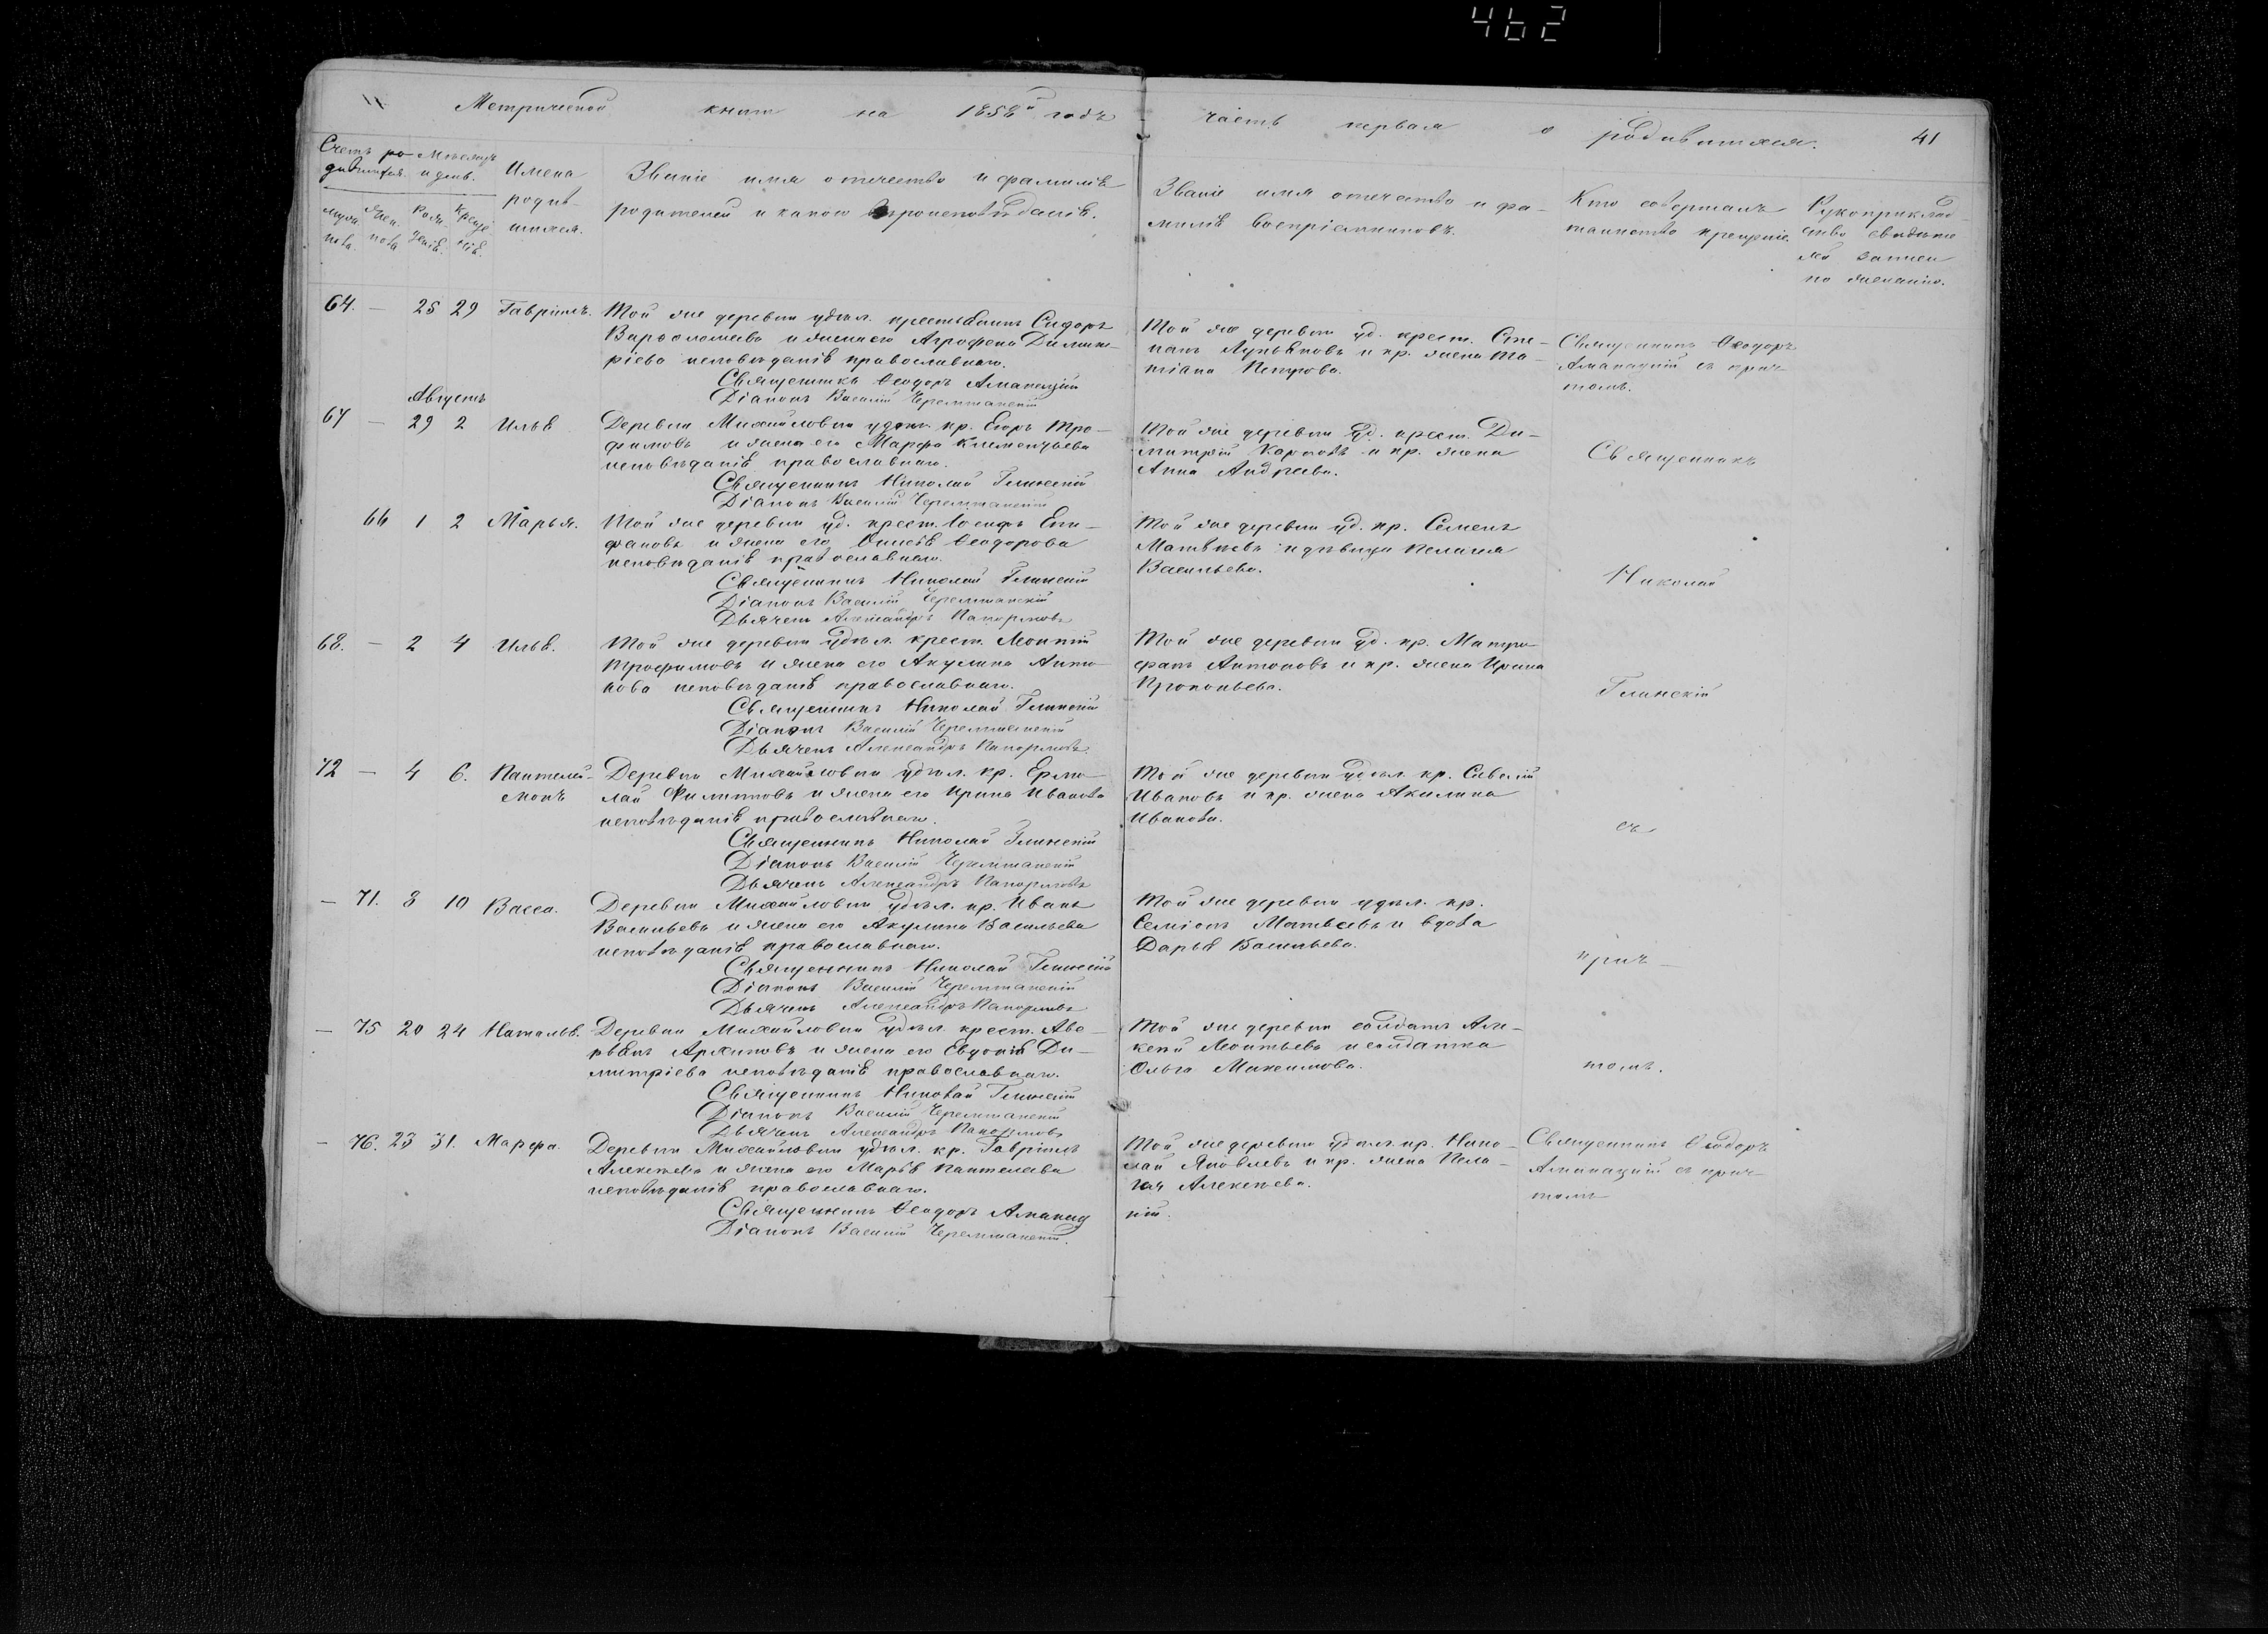 462
Метрической книги на 1858й годъ часть первая о родившихся. 41
Счетъ родившихся. Мѣсяцъ и день. Имена родившихся.
Званіе имя отечество и фамилія
родителей и какого вѣроисповѣданія.
Званіе имя отечество и фа-
милія воспріемниковъ.
Кто совершалъ
таинство крещенія.
Рукоприклад-
ство свидѣте
лей записи
по желанію.
муже. нска. жен. пола рожденія. крещенія.
64. — 25 29 Гавріилъ. Той же деревни удѣл. крестьянинъ Сидоръ
Варѳоломеевъ и жена его Агрофена Димит-
ріева исповѣданія православнаго.
Священникъ Ѳеодоръ Аманацкій
Діаконъ Василій Черемшанскій
Той же деревни уд. крест. Сте-
панъ Лукьяновъ и кр. жена Та-
тіана Петрова.
Священникъ Ѳеодоръ
Аманацкій съ прич-
томъ.
Августъ
67 — 29 2 Илья Деревни Михайловки удѣл. кр. Егоръ Тро-
фимовъ и жена его Марфа Клементьева
исповѣданія православнаго.
Священникъ Николай Глинскій
Діаконъ Василій Черемшанскій
Той же деревни уд. крест. Ди-
митрій Карповъ и кр. жена
Анна Андреева.
Священникъ
66 1 2 Марья. Той же деревни уд. крест. Іосифъ Епи-
фановъ и жена его Ѳеодорова
исповѣданія православнаго.
Священникъ Николай Глинскій
Діаконъ Василій Черемшанскій
Дьячекъ Александръ
Той же деревни уд. кр. Семенъ
Матвѣевъ и дѣвица Пелагия
Васильева.
Николай
68. — 2 4 Илья. Той же деревни удѣл. крест. Леонтій
Трофимовъ и жена его Акулина Анто-
нова исповѣданія православнаго.
Священникъ Николай Глинскій
Діаконъ Василій Черемшанскій
Дьячекъ Александръ
Той же деревни уд. кр. Митро-
фанъ Антоновъ и кр. жена Ирина
Прокопьева.
Глинскій
72 — 4 6. Пантелей-
монъ
Деревни Михайловки удѣл. кр. Ермо-
лай Филипповъ и жена его Ирина Иванова
исповѣданія православнаго.
Священникъ Николай Глинскій
Діаконъ Василій Черемшанскій
Дьячекъ Александръ
Той же деревни удѣл. кр. Савелій
Ивановъ и кр. жена Акилина
Иванова.
съ
— 71. 8 10 Васса. Деревни Михайловки удѣл. кр. Иванъ
Васильевъ и жена его Акулина Васильева
исповѣданія православнаго.
Священникъ Николай Глинскій
Діаконъ Василій Черемшанскій
Дьячекъ Александръ
Той же деревни удѣл. кр.
Семіонъ Матвеевъ и вдова
Дарья Васильева.
прич-
— 75 20 24 Наталья. Деревни Михайловки удѣл. крест. Аве-
рьянъ Архиповъ и жена его Евдокія Ди-
митріева исповѣданія православнаго.
Священникъ Николай Глинскій
Діаконъ Василій Черемшанскій
Дьячекъ Александръ
Той же деревни солдатъ Але-
ксѣй Леонтьевъ и солдатка
Ольга Максимова.
томъ.
— 76. 23 31. Марфа. Деревни Михайловки удѣл. кр. Гавріилъ
Алексѣевъ и жена его Марья Пантелеева
исповѣданія православнаго.
Священникъ Ѳеодоръ Аманац
Діаконъ Василій Черемшанскій.
Той же деревни удѣл. кр. Нико-
лай Яковлевъ и кр. жена Пела-
гія Алексѣева.
кій.
Священникъ Ѳеодоръ
Аманацкій съ прич-
томъ